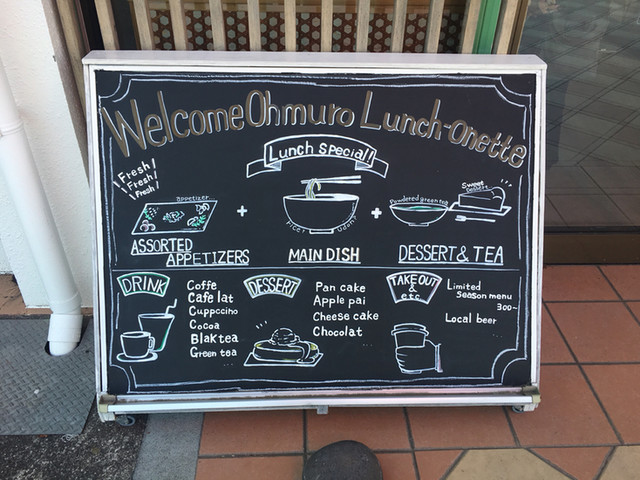 Welcome Ohmuro Lunch-onette
Lunch Special!
Fresh!
Fresh!
Fresh!
appetizer
+
Rice? Udon?
+
Powdered green tea
Sweet
Dessert
ASSORTED
APPETIZERS
MAIN DISH
DESSERT & TEA
DRINK
Coffe
Cafe lat
Cuppccino
Cocoa
Blaktea
Green tea
DESSERT
Pan cake
Apple pai
Cheese cake
Chocolat
TAKE OUT
&
etc
Limited
Season menu
300~
Local beer